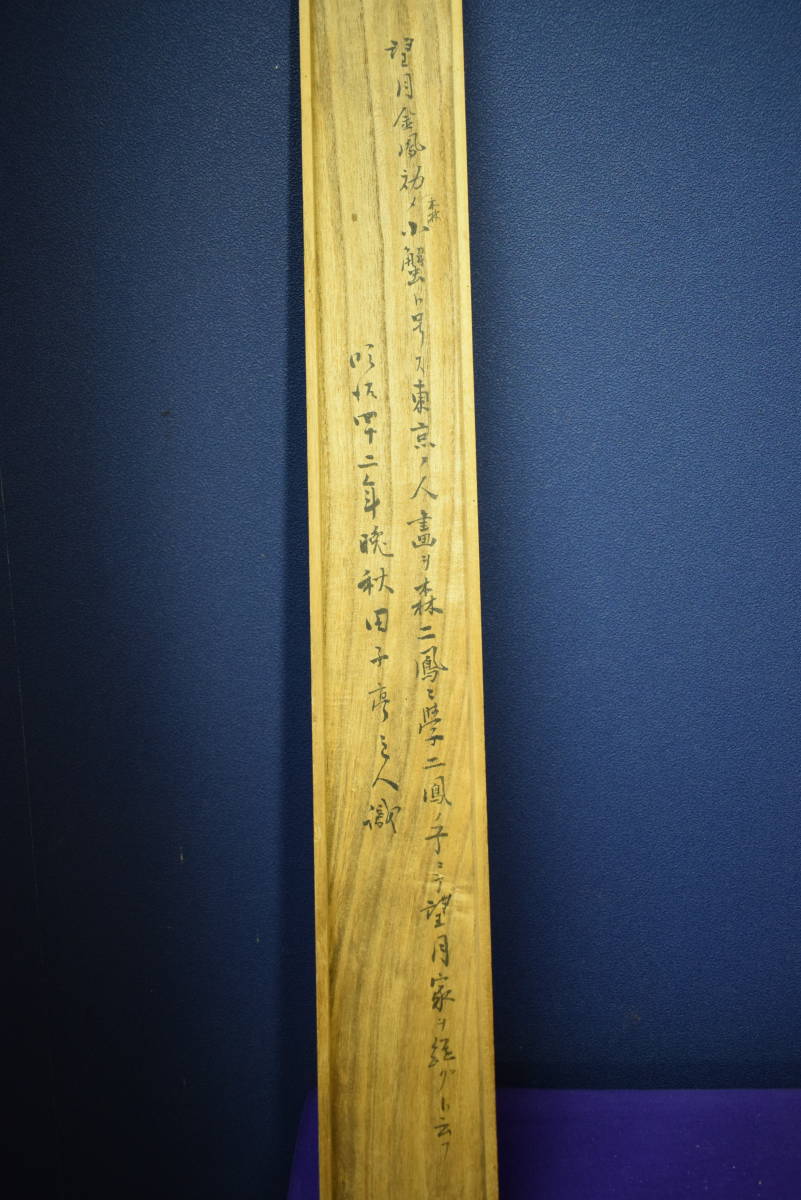 望月金鳳幼ノ森小蟹ト号ス東京ノ人畫ヲ森二鳳ニ學二鳳ノ子ニテ望月家ヲ継グト云フ
明治四十二年晩秋田子亭主人識